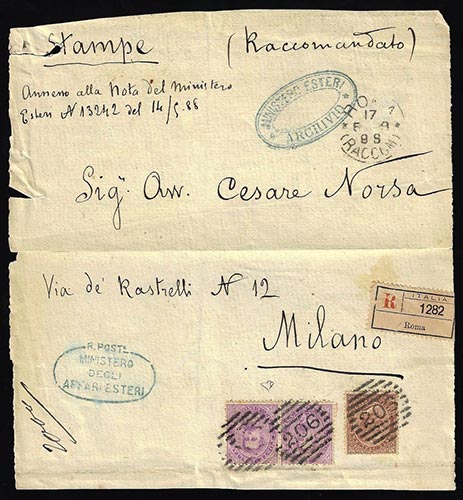 Stampe (Raccomandato)
Annesso alla Nota del Ministero
Esteri N 13242 del 14/5.88
MINISTERO ESTERI
ARCHIVIO
ROMA
17
88
(RACCOM)
Sigr. Avv. Cesare Norsa
Via de' Rastrelli N 12
ITALIA
R 1282
Roma
Milano
R. POSTE
MINISTERO
DEGLI
AFFARI ESTERI
206